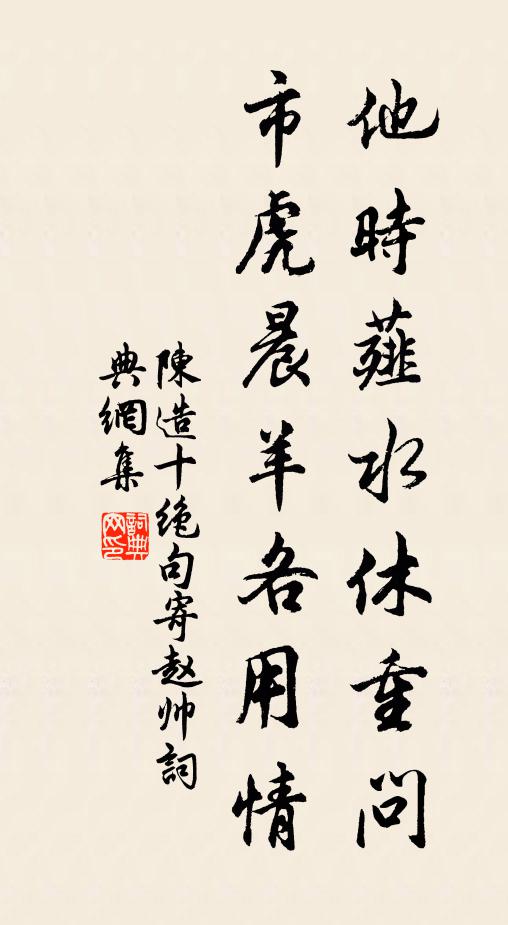 他時薤水休重問
市虎晨羊各用情
陳造十绝句寄赵帅詞
典網集
詞典网印